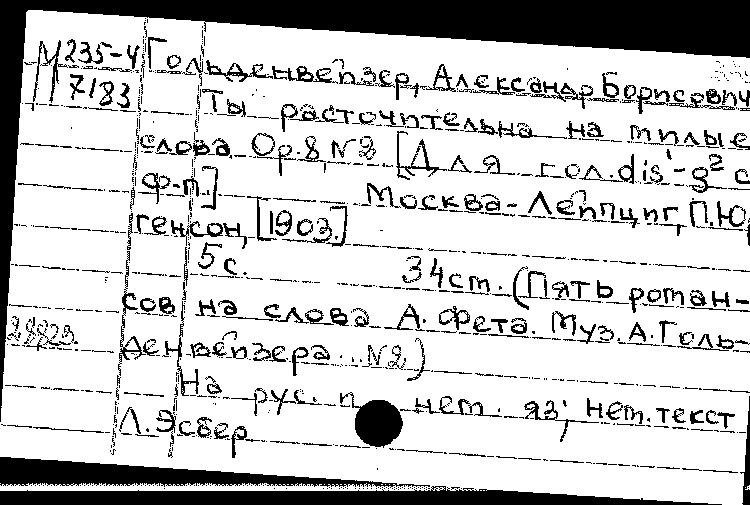 М 235-4
7183
Гольденвейзер, Александр Борисович
Ты расточительна на милые
слова. Op.8, N2 [Для гол. dis¹-g² с
ф-п.] Москва-Лейпциг, П.Юр
генсон, [1903.]
5с. 34см. (Пять роман-
сов на слова А. Фета. Муз. А. Голь-
денвейзера...N2)
На рус. и нем. яз; нем. текст
Л. Эсбер